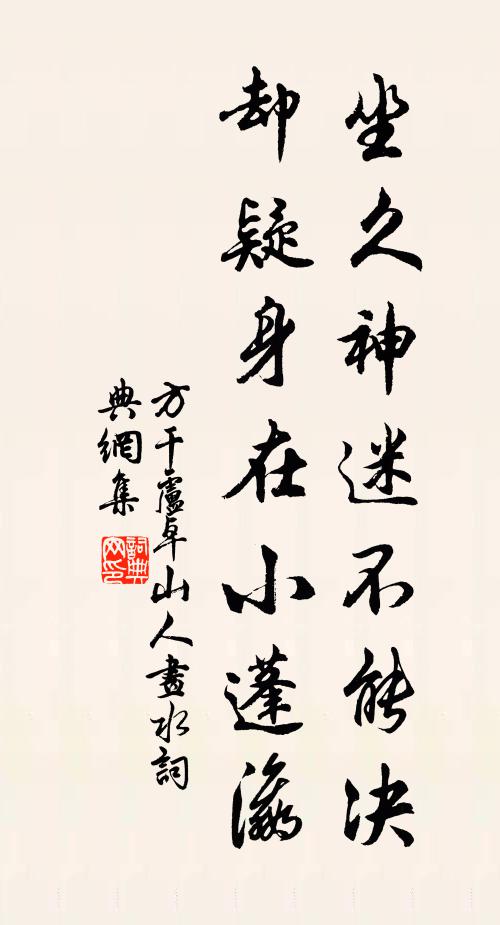 坐久神迷不能决
却疑身在小蓬瀛
方干盧卓山人畫水詞
典網集
詞典网印